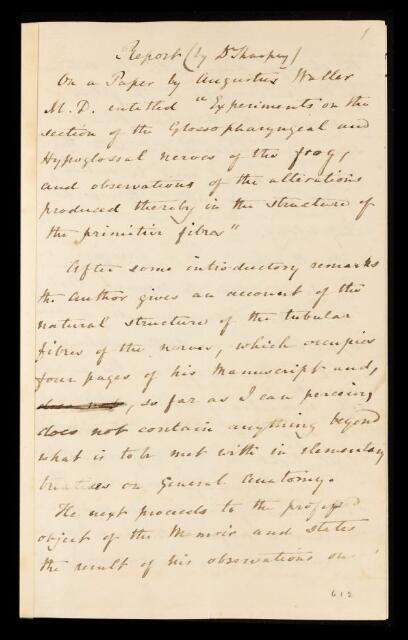 1
Report (by Dr Sharpey)
On a Paper by Augustus Waller
M.D. entitled "Experiments on the
section of the Glossopharyngeal and
Hypoglossal nerves of the frog,
and observations of the alterations
produced thereby in the structure of
the primitive fibres"
After some introductory remarks
the Author gives an account of the
natural structure of the tubular
fibres of the nerves, which occupies
four pages of his Manuscript and,
does not, so far as I can perceive,
does not contain anything beyond
what is to be met with in elementary
treatises on General Anatomy.
He next proceeds to the professed
object of the Memoir and states
the result of his observations on
612